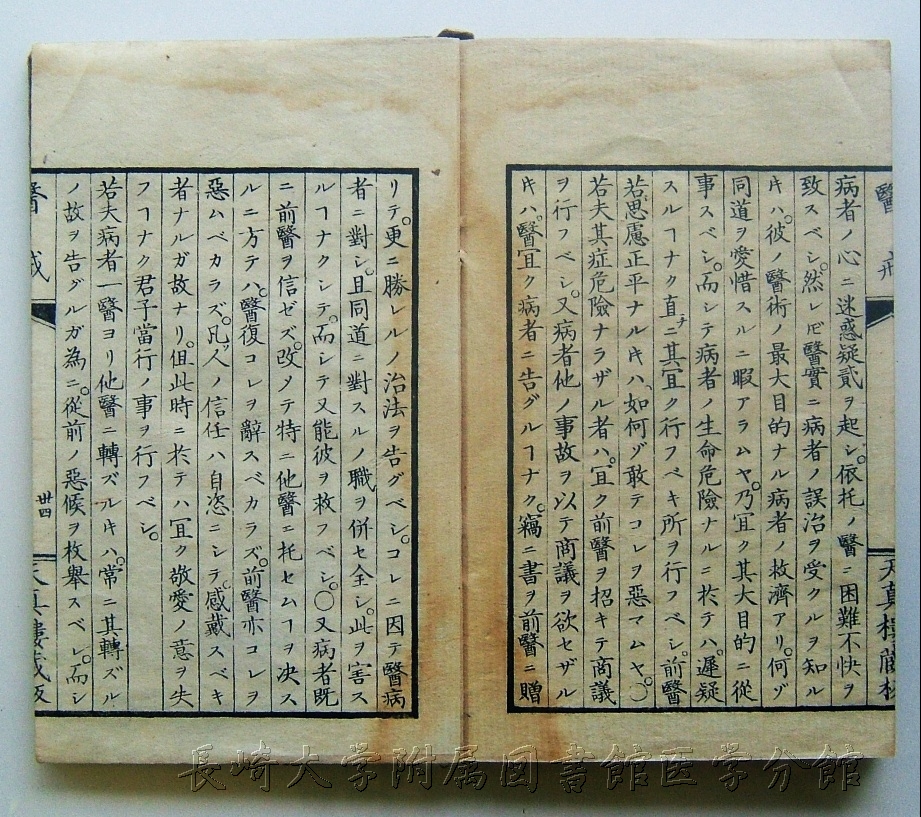 醫戒
病者ノ心ニ迷惑疑貳ヲ起シ。依托ノ醫ニ困難不快ヲ
致スベシ。然レ𪜈醫實ニ病者ノ誤治ヲ受クルヲ知ル
キハ。彼ノ醫術ノ最大目的ナル病者ノ救濟アリ。何ゾ
同道ヲ愛惜スルニ暇アラムヤ。乃冝ク其大目的ニ從
事スベシ。而シテ病者ノ生命危險ナルニ於テハ。遲疑
スルヿナク直ニ其冝ク行フベキ所ヲ行フベシ。前醫
若思慮正平ナルキハ、如何ゾ敢テコレヲ惡マムヤ。〇
若夫其症危險ナラザル者ハ。冝ク前醫ヲ招キテ商議
ヲ行フベシ。又病者他ノ事故ヲ以テ商議ヲ欲セザル
キハ。醫冝ク病者ニ告グルヿナク。竊ニ書ヲ前醫ニ贈
天真樓藏板
リテ。更ニ勝レルノ治法ヲ告グベシ。コレニ因テ醫病
者ニ對シ。且同道ニ對スルノ職ヲ併セ全シ。此ヲ害ス
ルヿナクシテ。而シテ又能彼ヲ救フベシ。〇又病者既
ニ前醫ヲ信ゼズ。改メテ特ニ他醫ニ托セムヿヲ决ス
ルニ方テハ。醫復コレヲ辭スベカラズ。前醫亦コレヲ
惡ムベカラズ。凡人ノ信任ハ自恣ニシテ。感戴スベキ
者ナルガ故ナリ。但此時ニ於テハ冝ク敬愛ノ意ヲ失
フヿナク君子當行ノ事ヲ行フベシ。
若夫病者一醫ヨリ他醫ニ轉ズルキハ。常ニ其轉ズル
ノ故ヲ告グルガ為ニ。從前ノ惡候ヲ枚舉スベシ。而シ
醫戒
卅四
天真樓藏板
長崎大学附属図書館医学分館